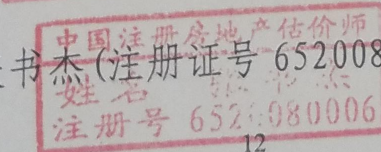 中国注册房地产估价师
书杰(注册证号 652008
姓名 杰
注册号 6520080006
12